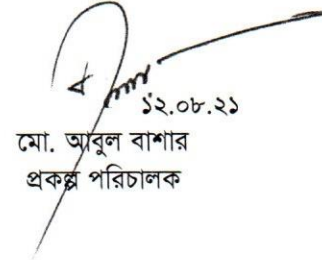 ১২.০৮.২১
মো. আবুল বাশার
প্রকল্প পরিচালক